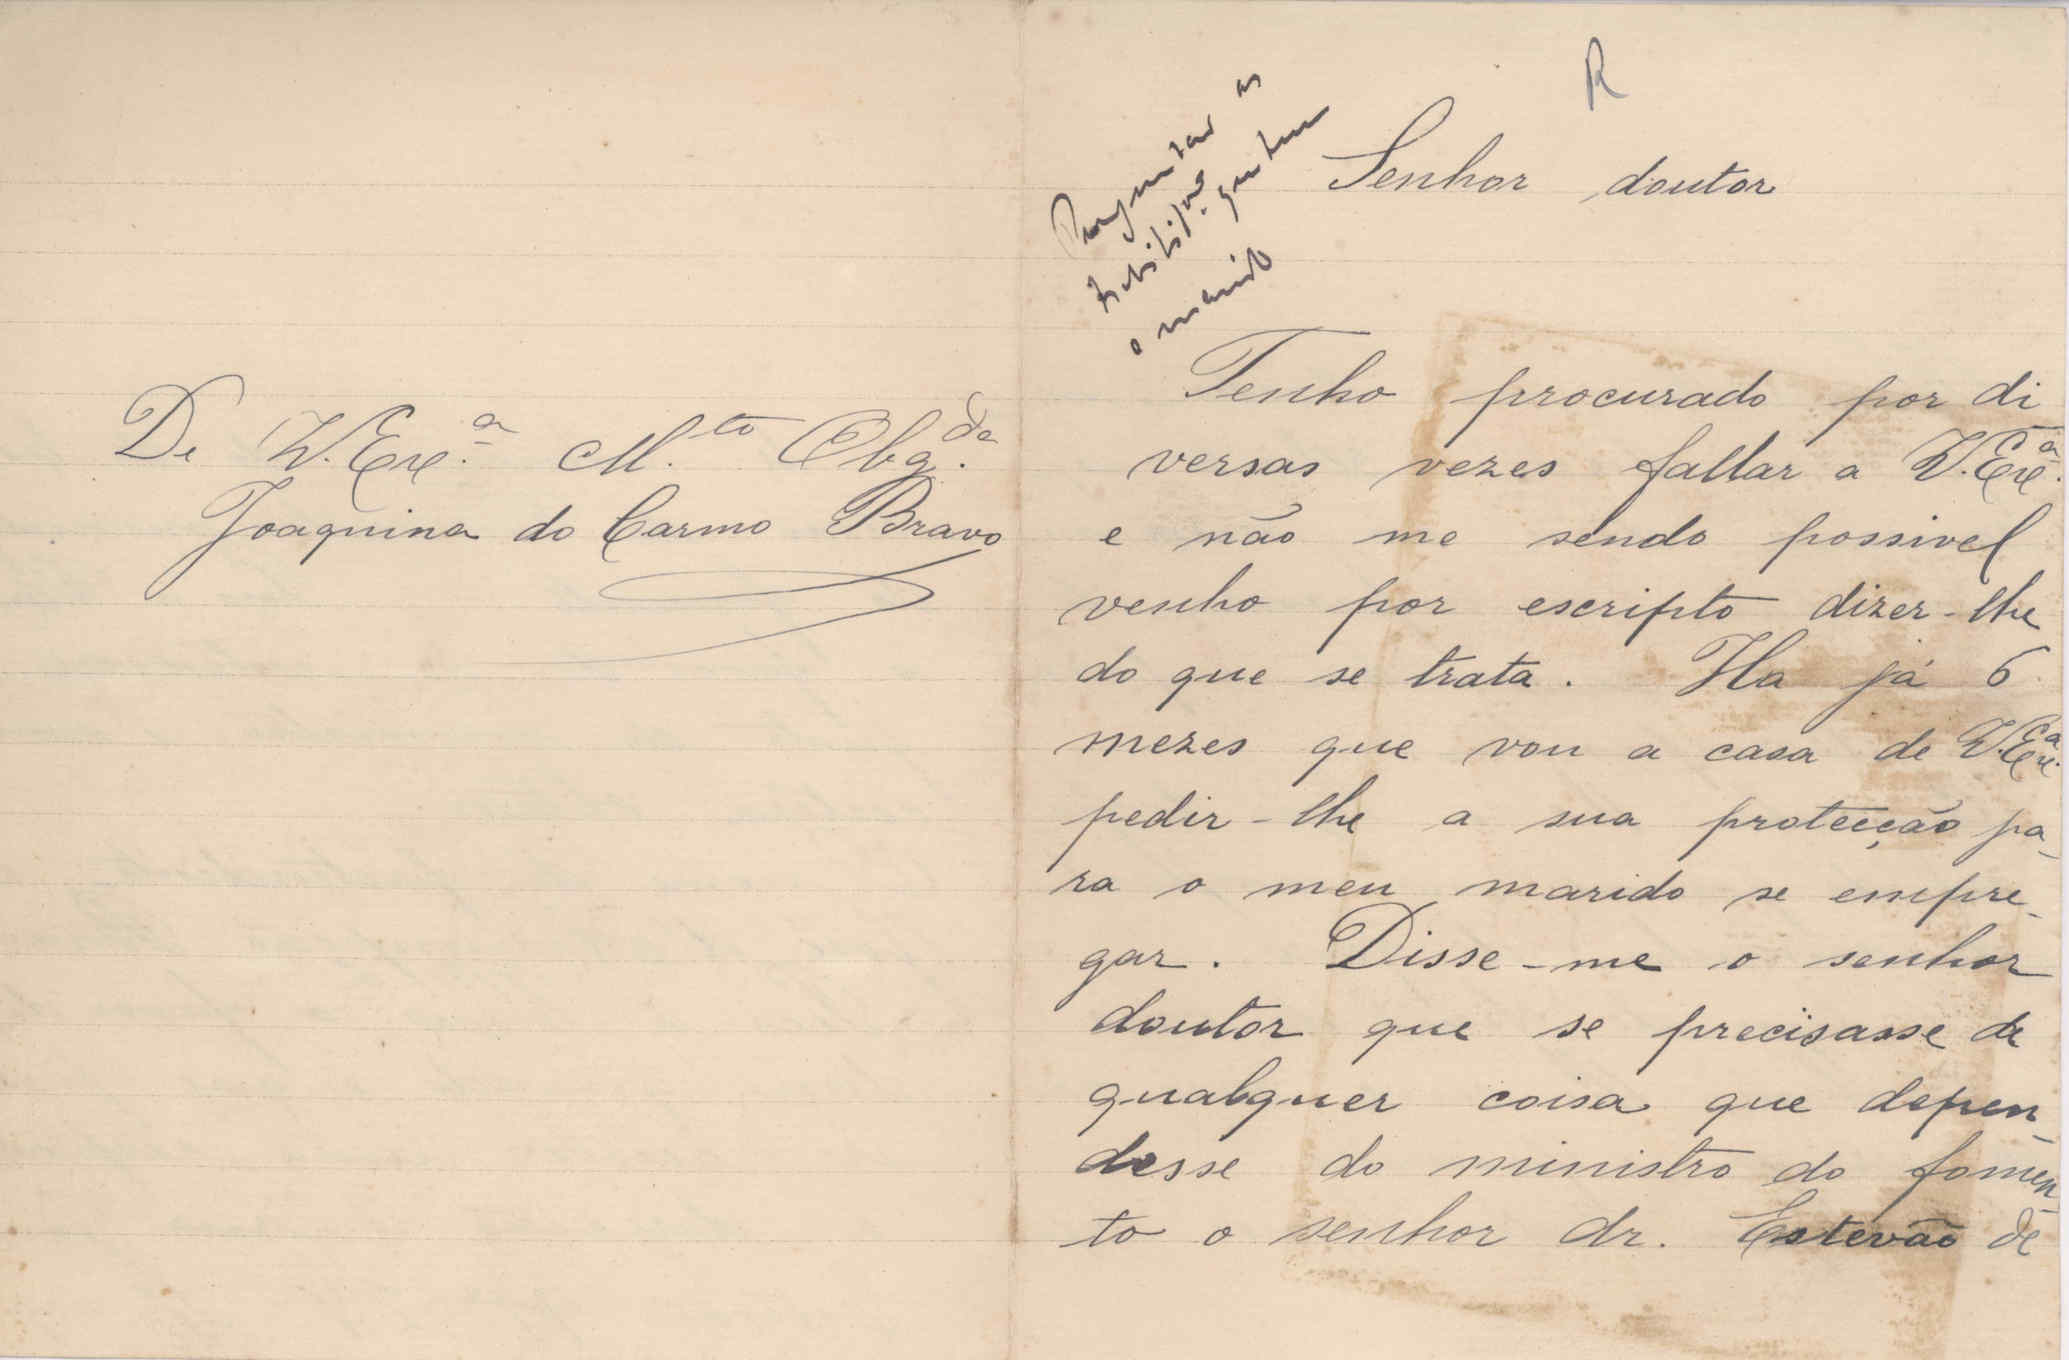 R
Senhor doutor
Perguntar as
habilitações que tem
o marido
Tenho procurado por di
versas vezes fallar a V. Exª.
e não me sendo possivel
venho por escripto dizer-lhe
do que se trata. Ha já 6
mezes que vou a casa de V. Exª.
pedir-lhe a sua protecção pa-
ra o meu marido se empre-
gar. Disse-me o senhor
doutor que se precisasse de
qualquer coisa que depen-
desse do ministro do fomen-
to o senhor dr. Estevão de
De V. Exª. M.to Obg.da
Joaquina do Carmo Bravo